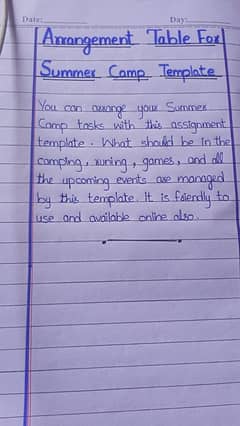 Date: Day:
Arrangement Table For
Summer Camp Template
You can arrange your Summer
Camp tasks with this assignment
template. What should be in the
camping, runing, games, and all
the upcoming events are managed
by this template. It is faiendly to
use and available online also.